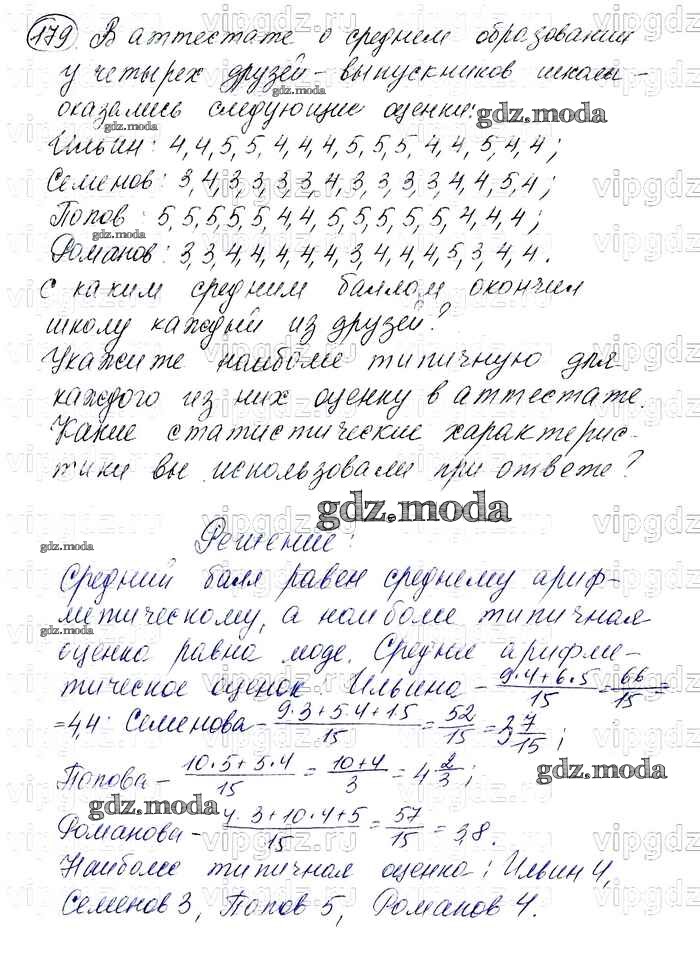 179 В аттестате о среднем образовании
у четырех друзей - выпускников школы -
оказались следующие оценки:
Ильин: 4,4,5,5,4,4,4,5,5,5,4,4,5,4,4;
Семенов: 3,4,3,3,3,3,4,3,3,3,3,4,4,5,4;
Попов: 5,5,5,5,5,4,4,5,5,5,5,5,4,4,4;
Романов: 3,3,4,4,4,4,4,3,4,4,4,5,3,4,4.
С каким средним баллом окончил
школу каждый из друзей?
Укажите наиболее типичную для
каждого из них оценку в аттестате.
Какие статистические характерис-
тики вы использовали при ответе?
gdz.moda
Решение:
Средний балл равен среднему ариф-
метическому, а наиболее типичная
оценка равна моде. Среднее арифме-
тическое оценок: Ильина - (9·4+6·5)/15 = 66/15 =
= 4,4. Семенова - (9·3+5·4+1·5)/15 = 52/15 = 3 7/15;
Попова - (10·5+5·4)/15 = (10+4)/3 = 4 2/3;
Романова - (4·3+10·4+5)/15 = 57/15 = 3,8.
Наиболее типичная оценка: Ильин 4,
Семенов 3, Попов 5, Романов 4.